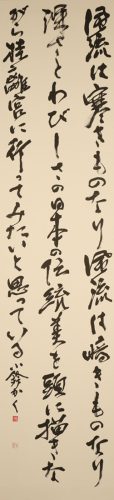 風流は寒きものなり風流は暗きものなり
渾さとわびしさの日本の伝統美を頭に描きな
がら桂離宮に行ってみたいと思っている かく